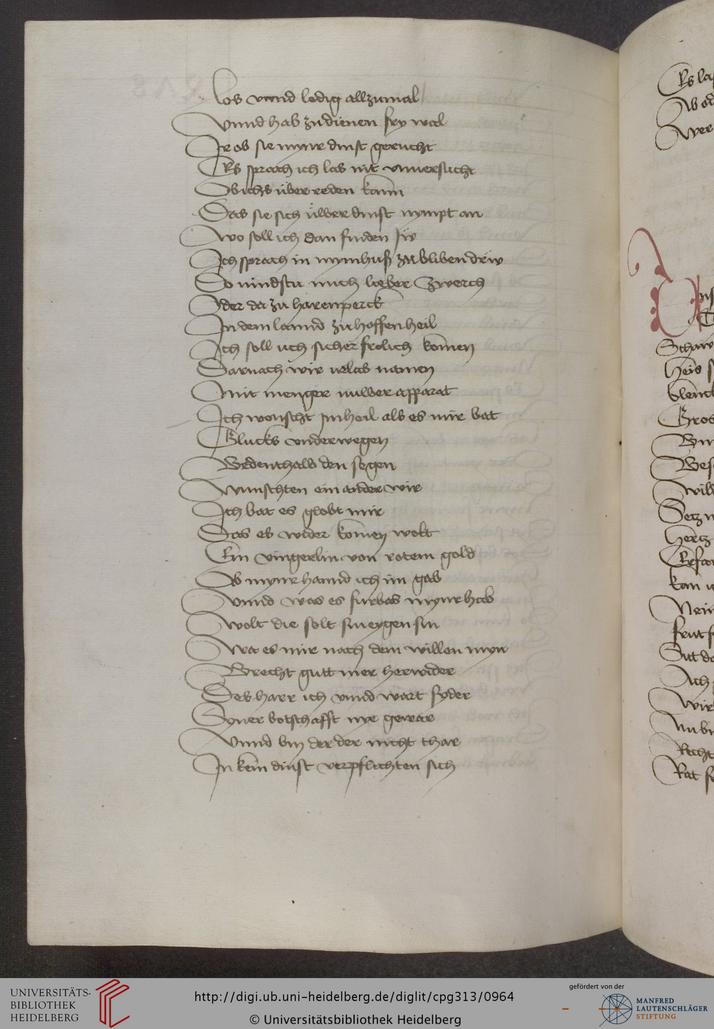 Los vnnd ledig allzumal
Vnnd hab zu dienen frÿ wal
Jr ob sie mÿnr dinst gerucht
Es sprach ich las nit vnuersucht
Ob ichs über reden kann
Das sie sich üwer dinst nÿmpt an
Wo soll ich dan finden üch
Ich sprach in mÿm huß zu bliben
So vindstu mich lieber zwerch
Oder da zu harenperck
In dem lannd zu hoffenheil
Ich soll uch sicher frolich komen
Darnach wir vrlab namen
Mit menger apparat
Ich wonscht im heil als es mir bat
Glucks vnderwegen
Bedenthalb den segen
Wunschten ein ander wir
Ich bat es globt mir
Das es wider komen wolt
Ein vingerlin von rotem gold
Ab mÿnr hannd ich im gab
Vnnd was es furbas mÿnr hab
Wolt die solt sin eÿgen sin
Wa es mir nach dem willen mÿn
Brecht gutt mer herwider
Des harr ich vnnd wart sÿder
Sÿner botschafft nÿe gewar
Vnnd bin der der nicht thar
In kein dinst verpflichten sich
Schw
Gros
Wil
Hertz
Kan
Nein
Ach
Wir
Recht
Rat
UNIVERSITÄTS-
BIBLIOTHEK
HEIDELBERG
http://digi.ub.uni-heidelberg.de/diglit/cpg313/0964
© Universitätsbibliothek Heidelberg
gefördert von der
MANFRED
LAUTENSCHLÄGER
STIFTUNG